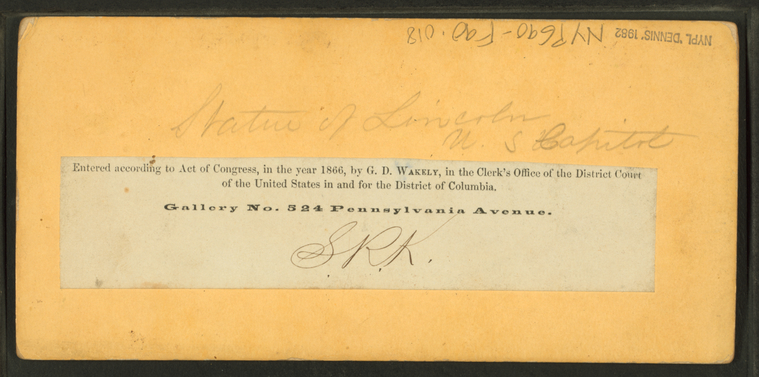 NYPL 'DENNIS' 1982 NYPG90-F90.018
Statue of Lincoln
U. S Capitol
Entered according to Act of Congress, in the year 1866, by G. D. WAKELY, in the Clerk's Office of the District Court
of the United States in and for the District of Columbia.
Gallery No. 524 Pennsylvania Avenue.
S.R.K.